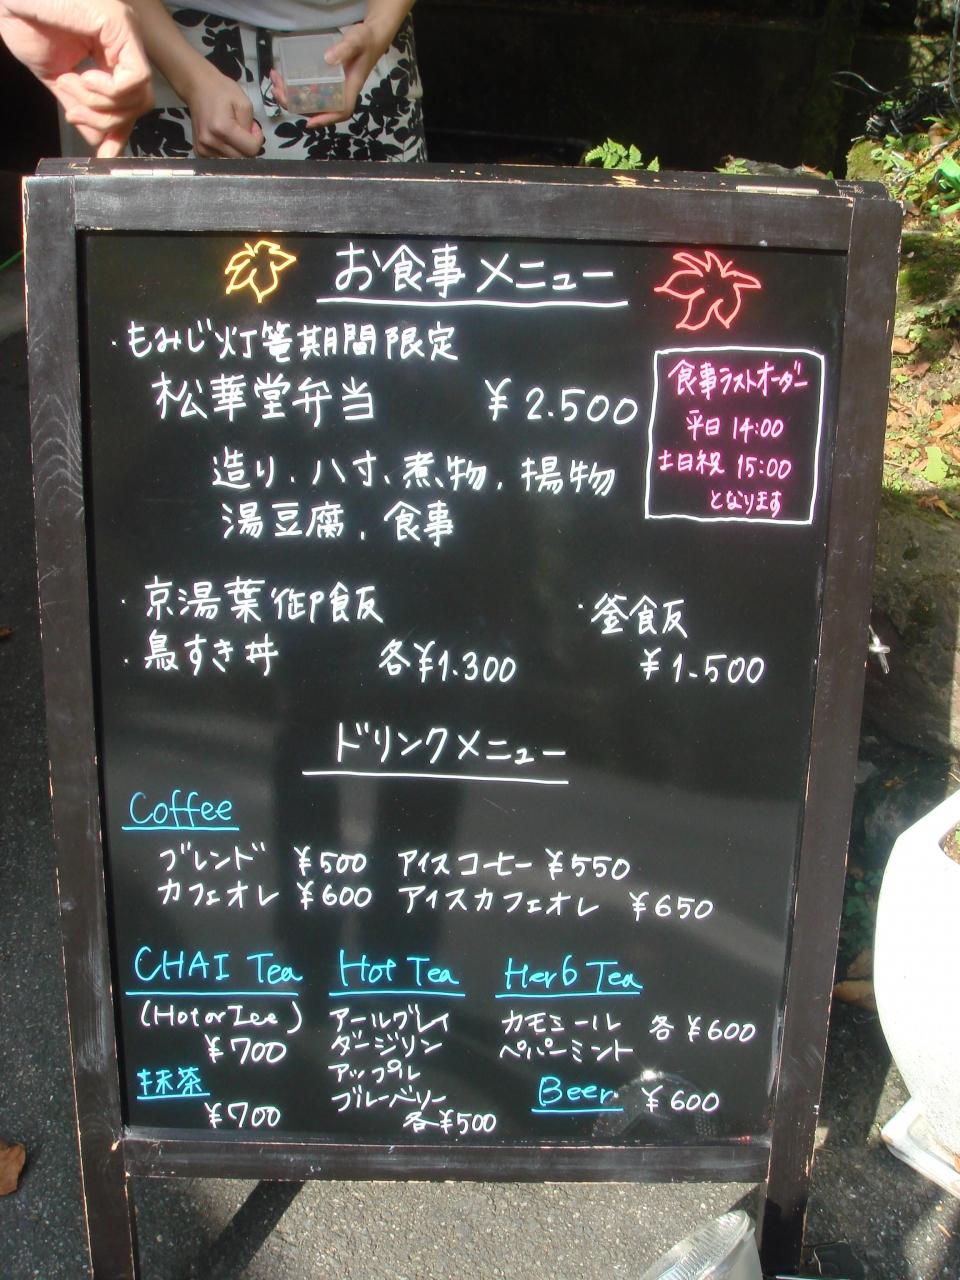 お食事メニュー
・もみじ灯篭期間限定
松華堂弁当 ¥2.500
造り、八寸、煮物、揚物
湯豆腐、食事
食事ラストオーダー
平日 14:00
土日祝 15:00
となります
・京湯葉御飯
・鳥すき丼 各¥1.300
・釜飯
¥1.500
ドリンクメニュー
Coffee
ブレンド ¥500 アイスコーヒー ¥550
カフェオレ ¥600 アイスカフェオレ ¥650
CHAI Tea
(Hot or Ice)
¥700
抹茶
¥700
Hot Tea
アールグレイ
ダージリン
アップル
ブルーベリー
各¥500
Herb Tea
カモミール 各¥600
ペパーミント
Beer ¥600